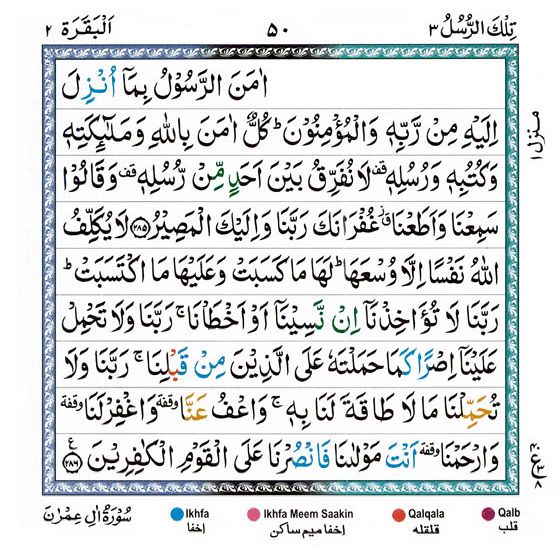 تِلْكَ الرُّسُلُ ٣
٥٠
اَلْبَقَرَة ٢
اٰمَنَ الرَّسُوْلُ بِمَاۤ اُنْزِلَ
اِلَيْهِ مِنْ رَّبِّهٖ وَالْمُؤْمِنُوْنَ ؕ كُلٌّ اٰمَنَ بِاللّٰهِ وَمَلٰٓئِكَتِهٖ
وَكُتُبِهٖ وَرُسُلِهٖ قف لَا نُفَرِّقُ بَيْنَ اَحَدٍ مِّنْ رُّسُلِهٖ قف وَقَالُوْا
سَمِعْنَا وَاَطَعْنَا ق٘ غُفْرَانَكَ رَبَّنَا وَاِلَيْكَ الْمَصِيْرُ ﴿٢٨٥﴾ لَا يُكَلِّفُ
اللّٰهُ نَفْسًا اِلَّا وُسْعَهَا ؕ لَهَا مَا كَسَبَتْ وَعَلَيْهَا مَا اكْتَسَبَتْ ؕ
رَبَّنَا لَا تُؤَاخِذْنَاۤ اِنْ نَّسِيْنَاۤ اَوْ اَخْطَاْنَا ۚ رَبَّنَا وَلَا تَحْمِلْ
عَلَيْنَاۤ اِصْرًا كَمَا حَمَلْتَهٗ عَلَى الَّذِيْنَ مِنْ قَبْلِنَا ۚ رَبَّنَا وَلَا
تُحَمِّلْنَا مَا لَا طَاقَةَ لَنَا بِهٖ ۚ وَاعْفُ عَنَّا وقفة وَاغْفِرْ لَنَا وقفة
وَارْحَمْنَا وقفة اَنْتَ مَوْلٰىنَا فَانْصُرْنَا عَلَى الْقَوْمِ الْكٰفِرِيْنَ ﴿٢٨٦﴾ ع
منزل ١
سُوْرَةُ اٰلِ عِمْرٰنَ
Ikhfa
اخفا
Ikhfa Meem Saakin
اخفا میم ساکن
Qalqala
قلقله
Qalb
قلب